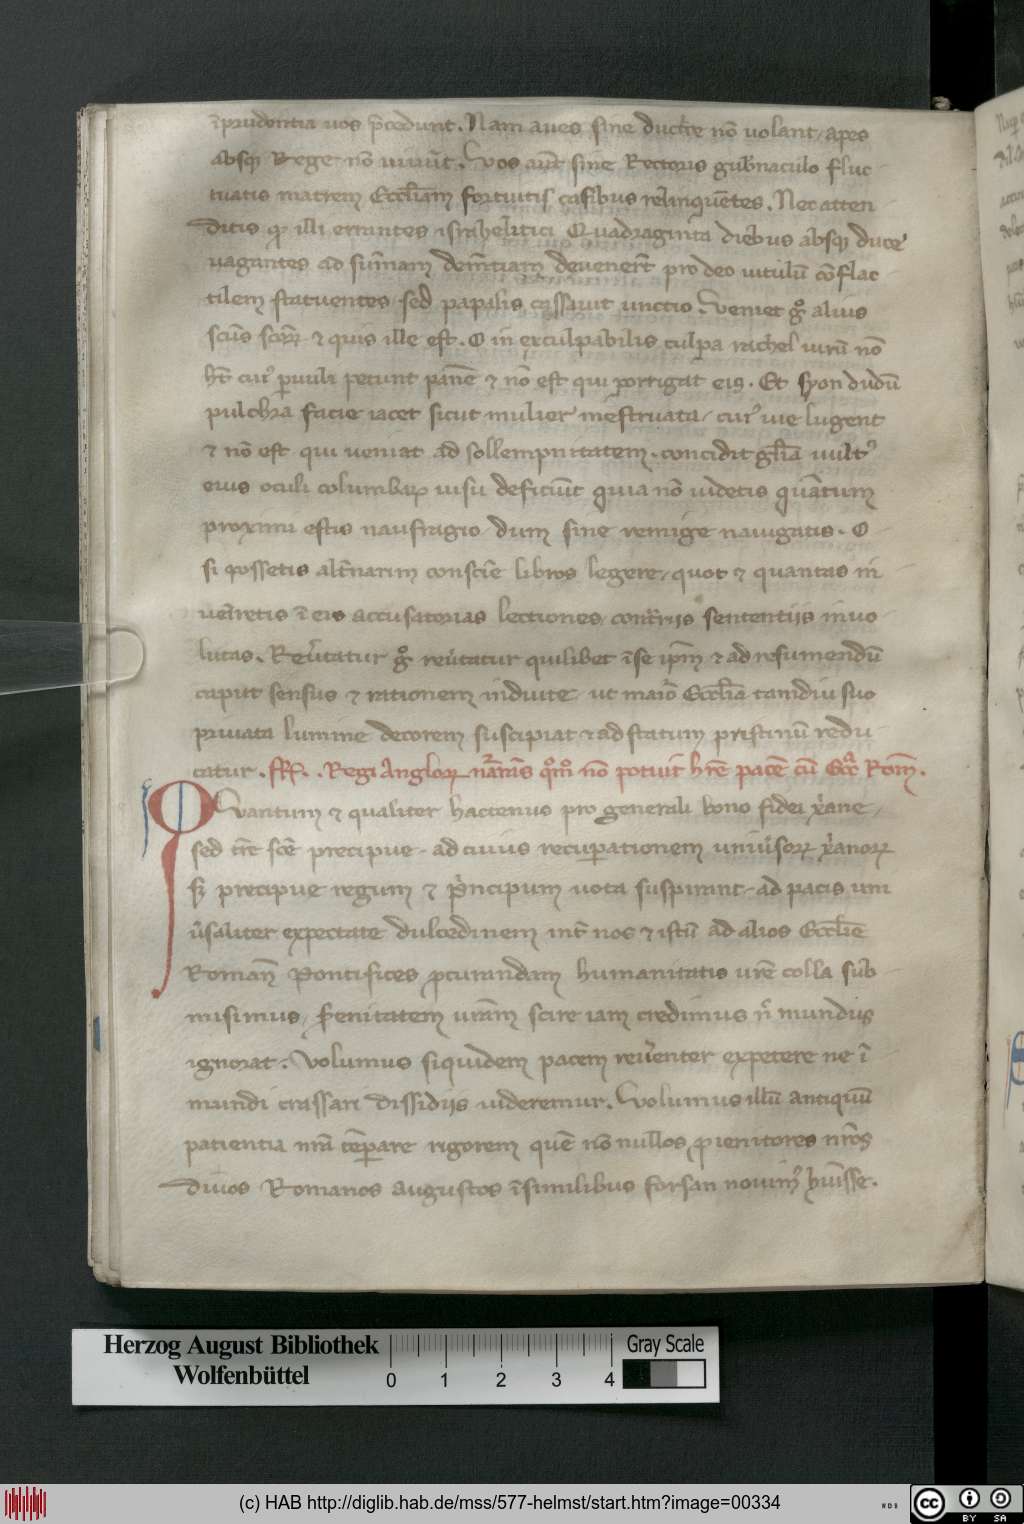 īprudentia uos p̄cedunt. Nam aues sine ductē nō uolant, apes
absq̨ Rege nō uiuūt. Vos aūt sine Rectoris gub̄naculo fluc
tuatis matrem Eccl̄iam fortuitis casibus relinquētes. Nec atten
ditis q illi errantes israhelitici Quadraginta diebus absq̨ duce
uagantes ad sum̄am dem̄tiam deuener̄t pro deo uitulū cōflac
tilem statuentes, sed papalis cassauit unctio. veniet gͦ alius
sc̄us sc̄oꝝ & quis ille est. O in exculpabilis culpa rachel uirū nō
ħt cuiꝰ puuli petunt panē & nō est qui porrigat eis. Et syon dudū
pulchra facie iacet sicut mulier mestruata, cuiꝰ uie lugent
& nō est qui ueniat ad sollempnitatem. concidit gl̄ia uultꝰ
eius oculi columbaꝝ uisu deficiūt quia nō uidetis quātum
proximi estis naufragio dum sine remige nauigatis. O
si possetis alt̄narim consciē libros legere, quot & quantas in
uēiretis ī eis accusatorias lectiones, contr̄iis sententiis inuo
lutas. Reu̇tatur gͦ reu̇tatur quilibet ī se ip̄m & ad resumendū
caput sensus & rationem induite ut mat̄ Eccl̄ia tamdiu suo
priuata lumine decorem suscipiat & ad statum pristinū redu
catur. fR̄. Regi Angloꝝ nar̄ans qͦmͦ nō potuit hr̄e pacē cū Eccᵃ Rom̄.
Quantum & qualiter hactenus pro generali bono fidei xᵖane,
sed tr̄e sc̄e precipue, ad cuius recupationem uniu̇soꝝ xᵖanoꝝ
sꝫ precipue regum & pⁱncipum uota suspirant, ad pacis uni
u̇saliter expectate dulcedinem int̄ nos & istū ad alios Eccl̄ie
Roman̄ Pontifices ꝓcurandam humanitatis ur̄e colla sub
misimus, s̄enitatem ur̄am scire iam credimus nͨ mundus
ignorat. Volumus siquidem pacem reu̇enter expetere ne ī
mundi crassari dissidiis uideremur. Volumus illū antiquū
patientia nr̄a tēpare rigorem quē nō nullos, ꝓienitores nr̄os
diuos Romanos augustos īsimilibus forsan nouimꝰ ħuisse.
Herzog August Bibliothek
Wolfenbüttel
0 1 2 3 4
Gray Scale
(c) HAB http://diglib.hab.de/mss/577-helmst/start.htm?image=00334
WDB
cc BY SA